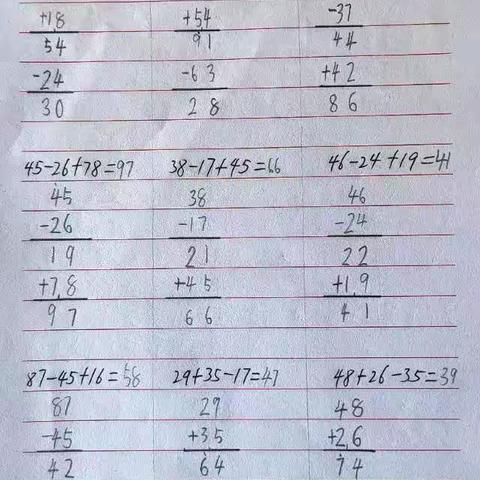 +18 +54 -37
54 91 44
-24 -63 +42
30 28 86
45-26+78=97 38-17+45=66 46-24+19=41
45 38 46
-26 -17 -24
19 21 22
+78 +45 +19
97 66 41
87-45+16=58 29+35-17=47 48+26-35=39
87 29 48
-45 +35 +26
42 64 74